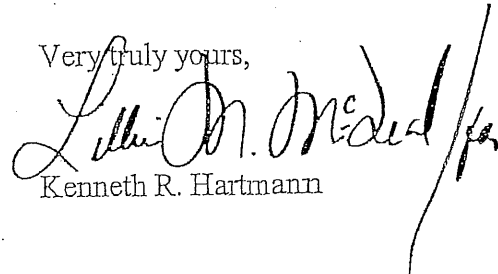 Very truly yours,
Lillie M. McLeod /for
Kenneth R. Hartmann